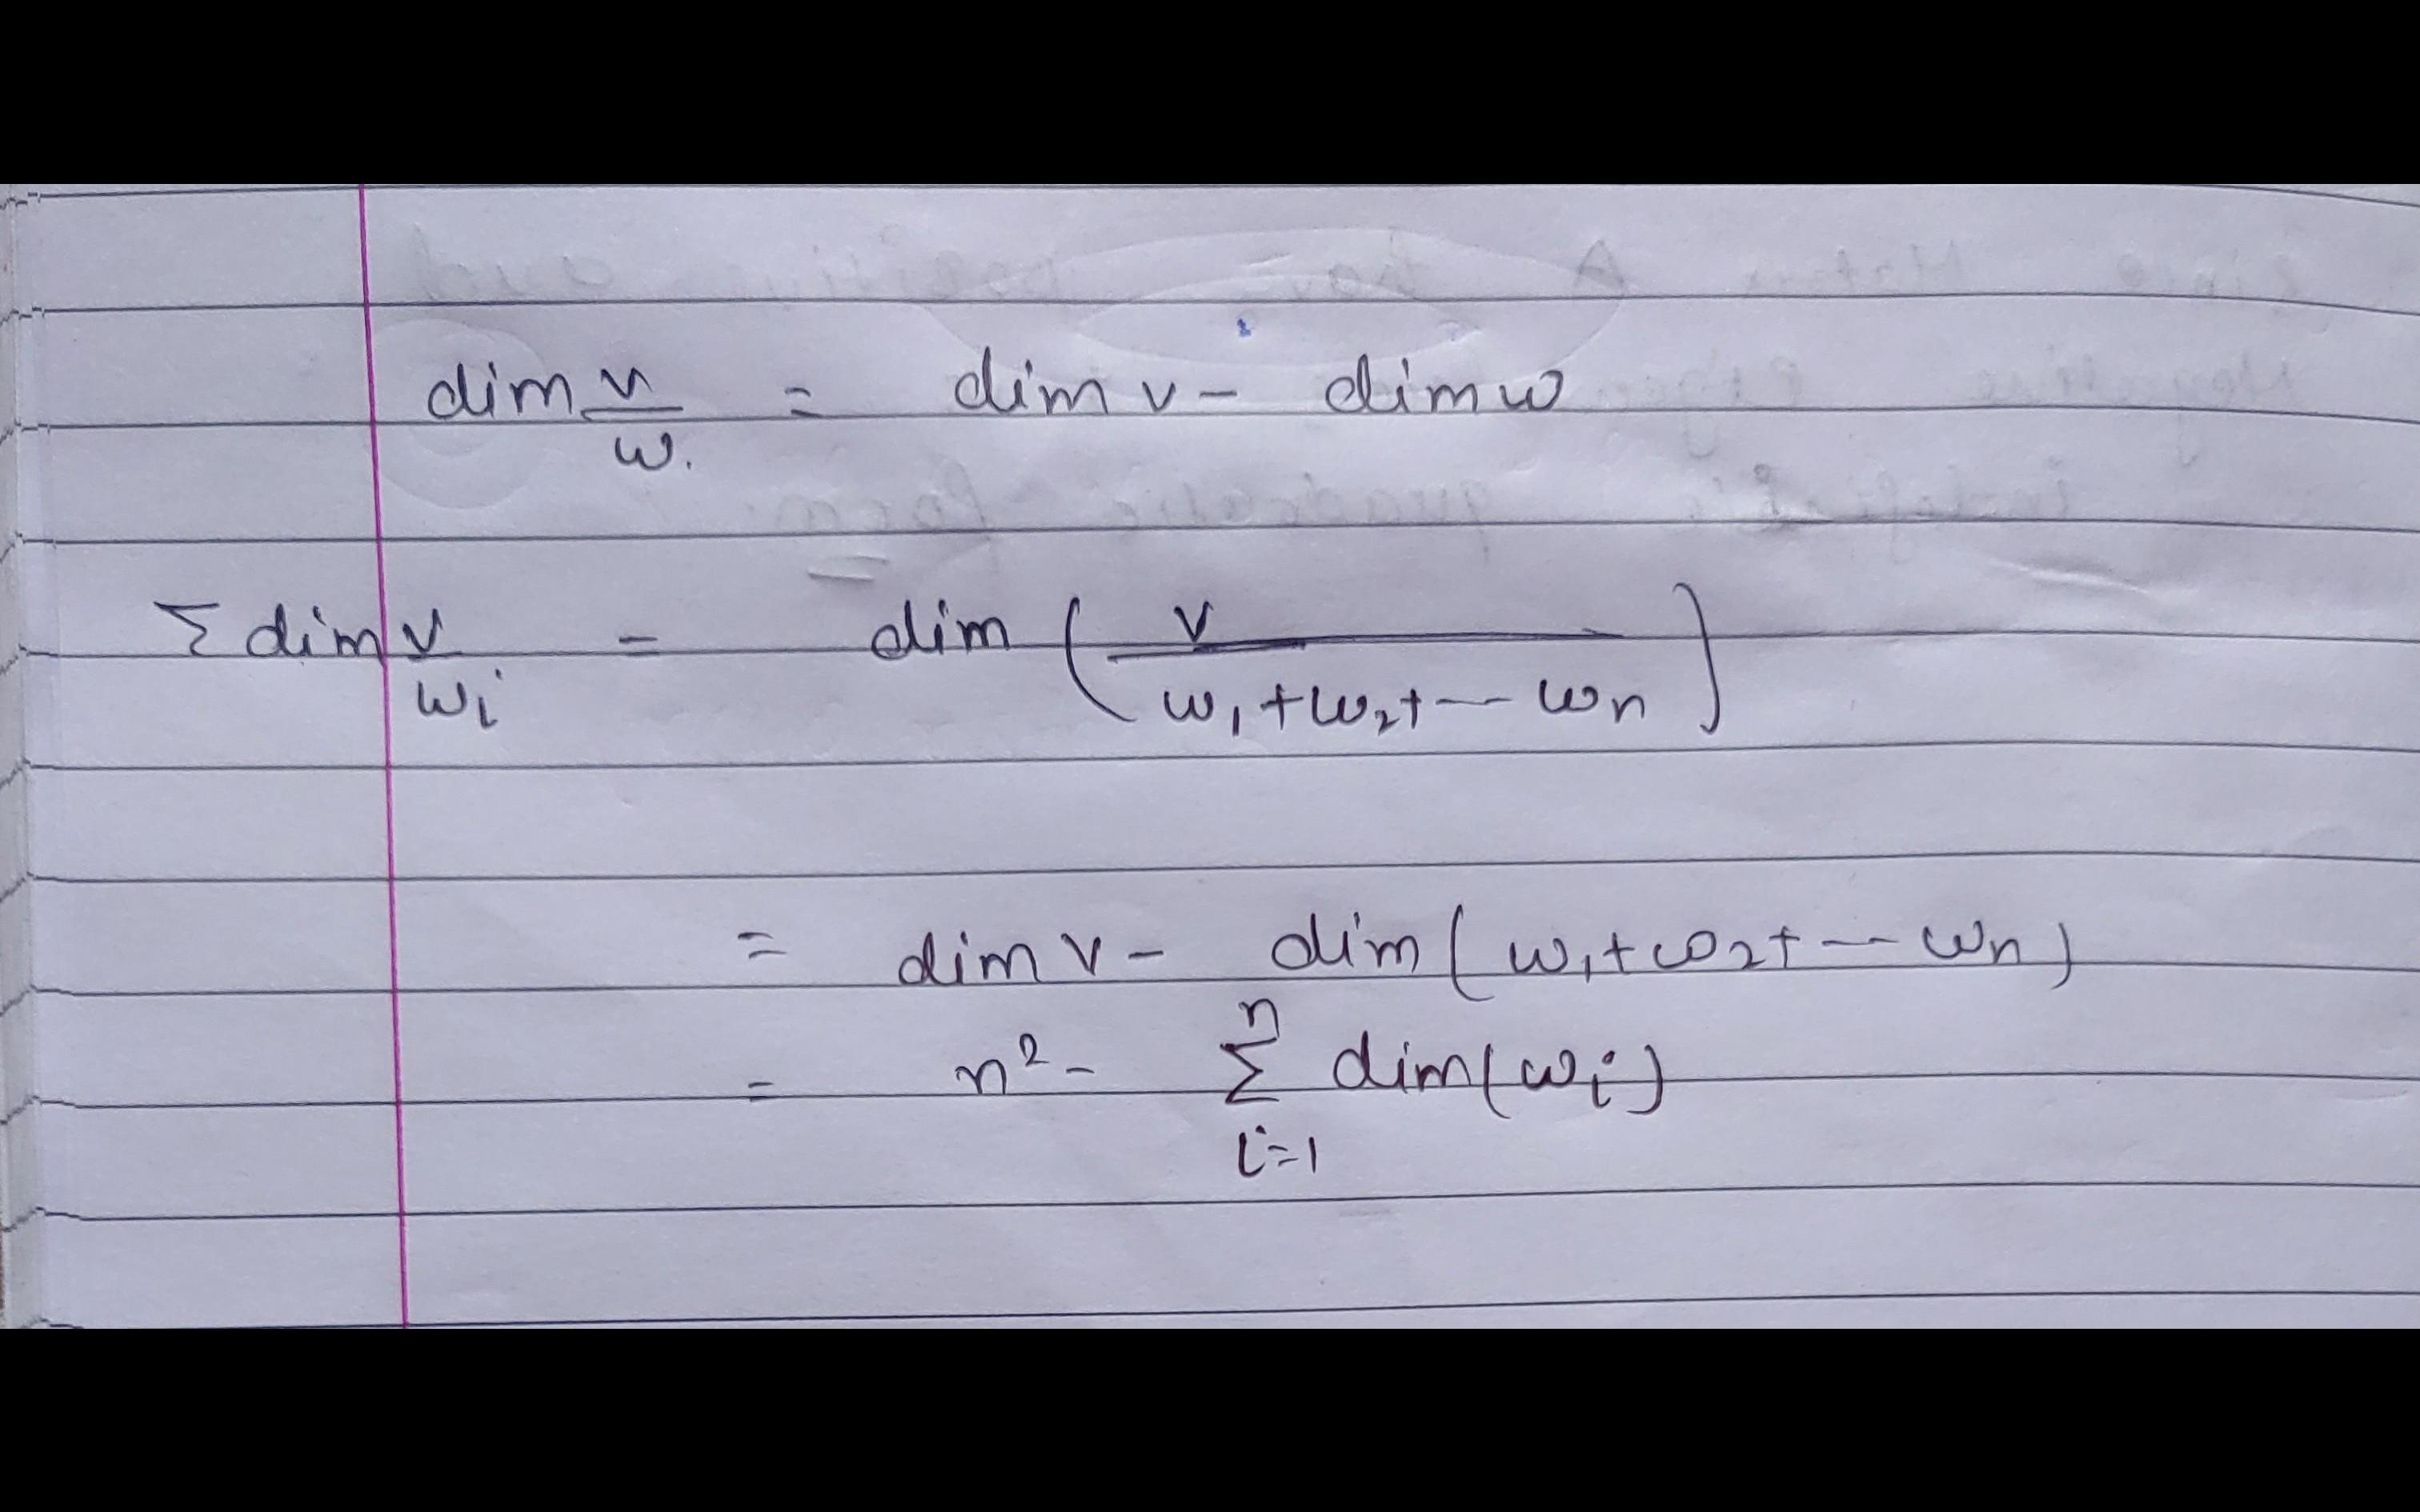 dim v/w. = dim v - dim w
Σ dim v/wi = dim (v/(w₁+w₂+--- wn))
= dim v - dim (w₁+w₂+--- wn)
= n² - Σⁿᵢ₌₁ dim(wi)